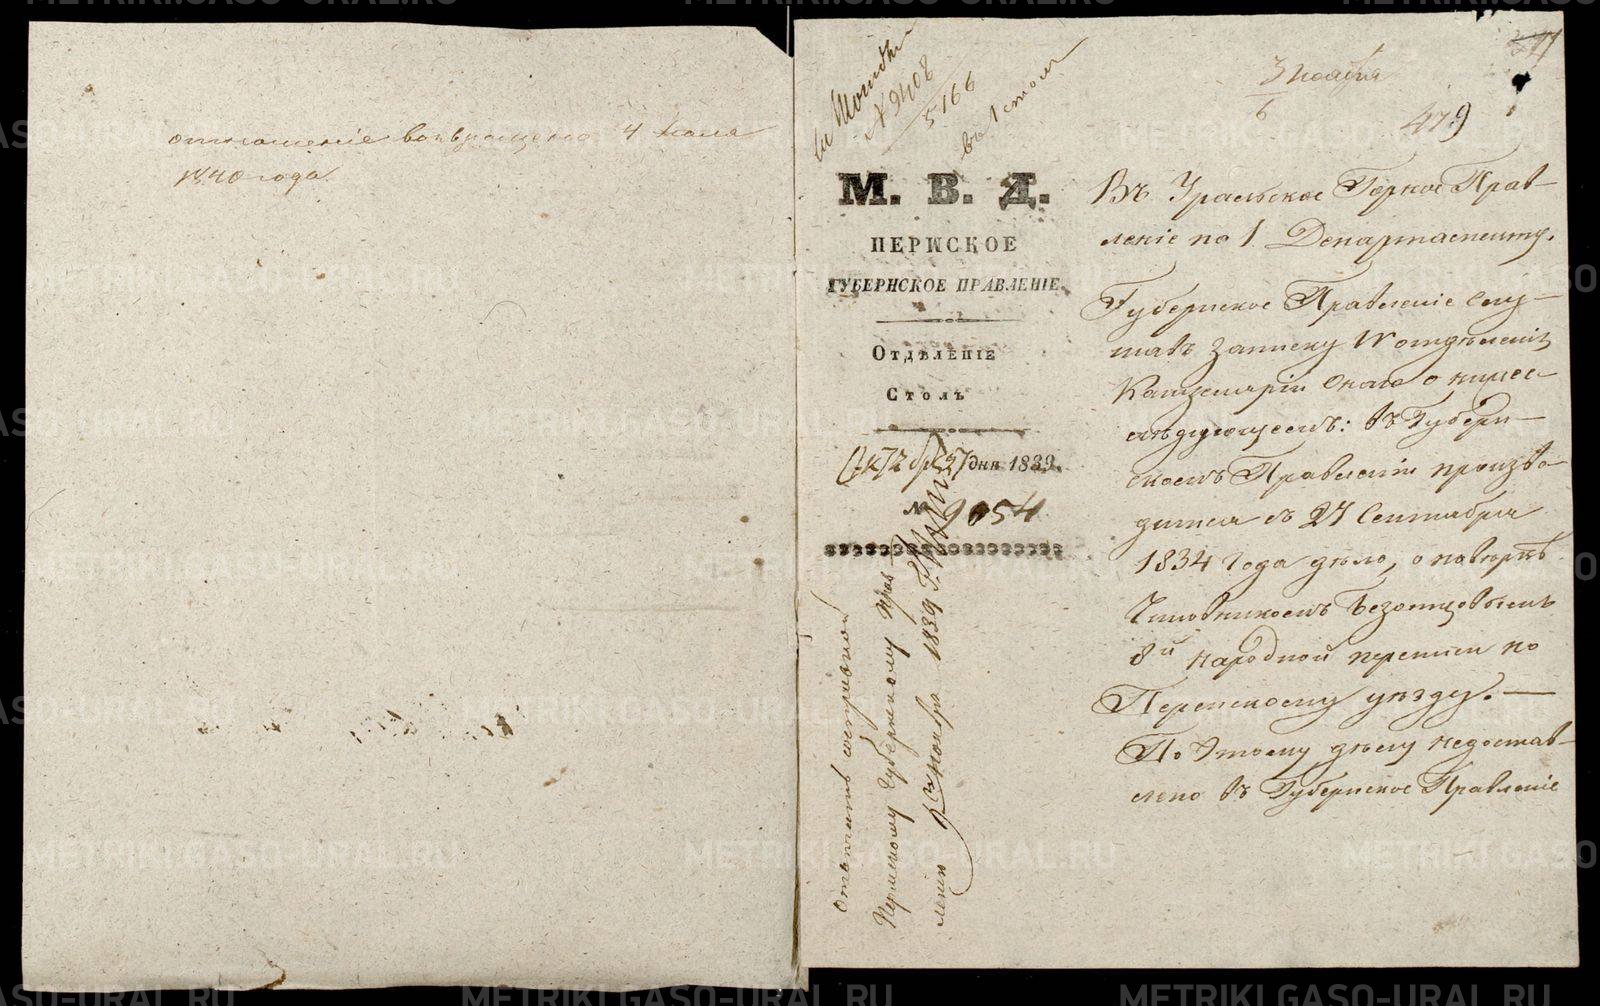 отношеніе возвращено 4 маія
1840 года
3 ноября
6
479
№ 9408
5166
въ 1 столъ
М. В. Д.
ПЕРМСКОЕ
ГУБЕРНСКОЕ ПРАВЛЕНІЕ.
Отдѣленіе
Столъ
27 дня 1839.
№ 9054
Пермскому Губернскому Прав
ленію ноября 1839 г.
Въ Уральское Горное Прав-
леніе по 1 Департаменту.
Губернское Правленіе слу-
шавъ записку IV отдѣленія
Канцеляріи своей о нижес-
лѣдующемъ: въ Губерн-
скомъ Правленіи произво-
дится съ 27 Сентября
1834 года дѣло, о повѣркѣ
Чиновникомъ Безотцовымъ
8й народной переписи по
Пермскому уѣзду. —
По этому дѣлу недостав-
лено въ Губернское Правленіе